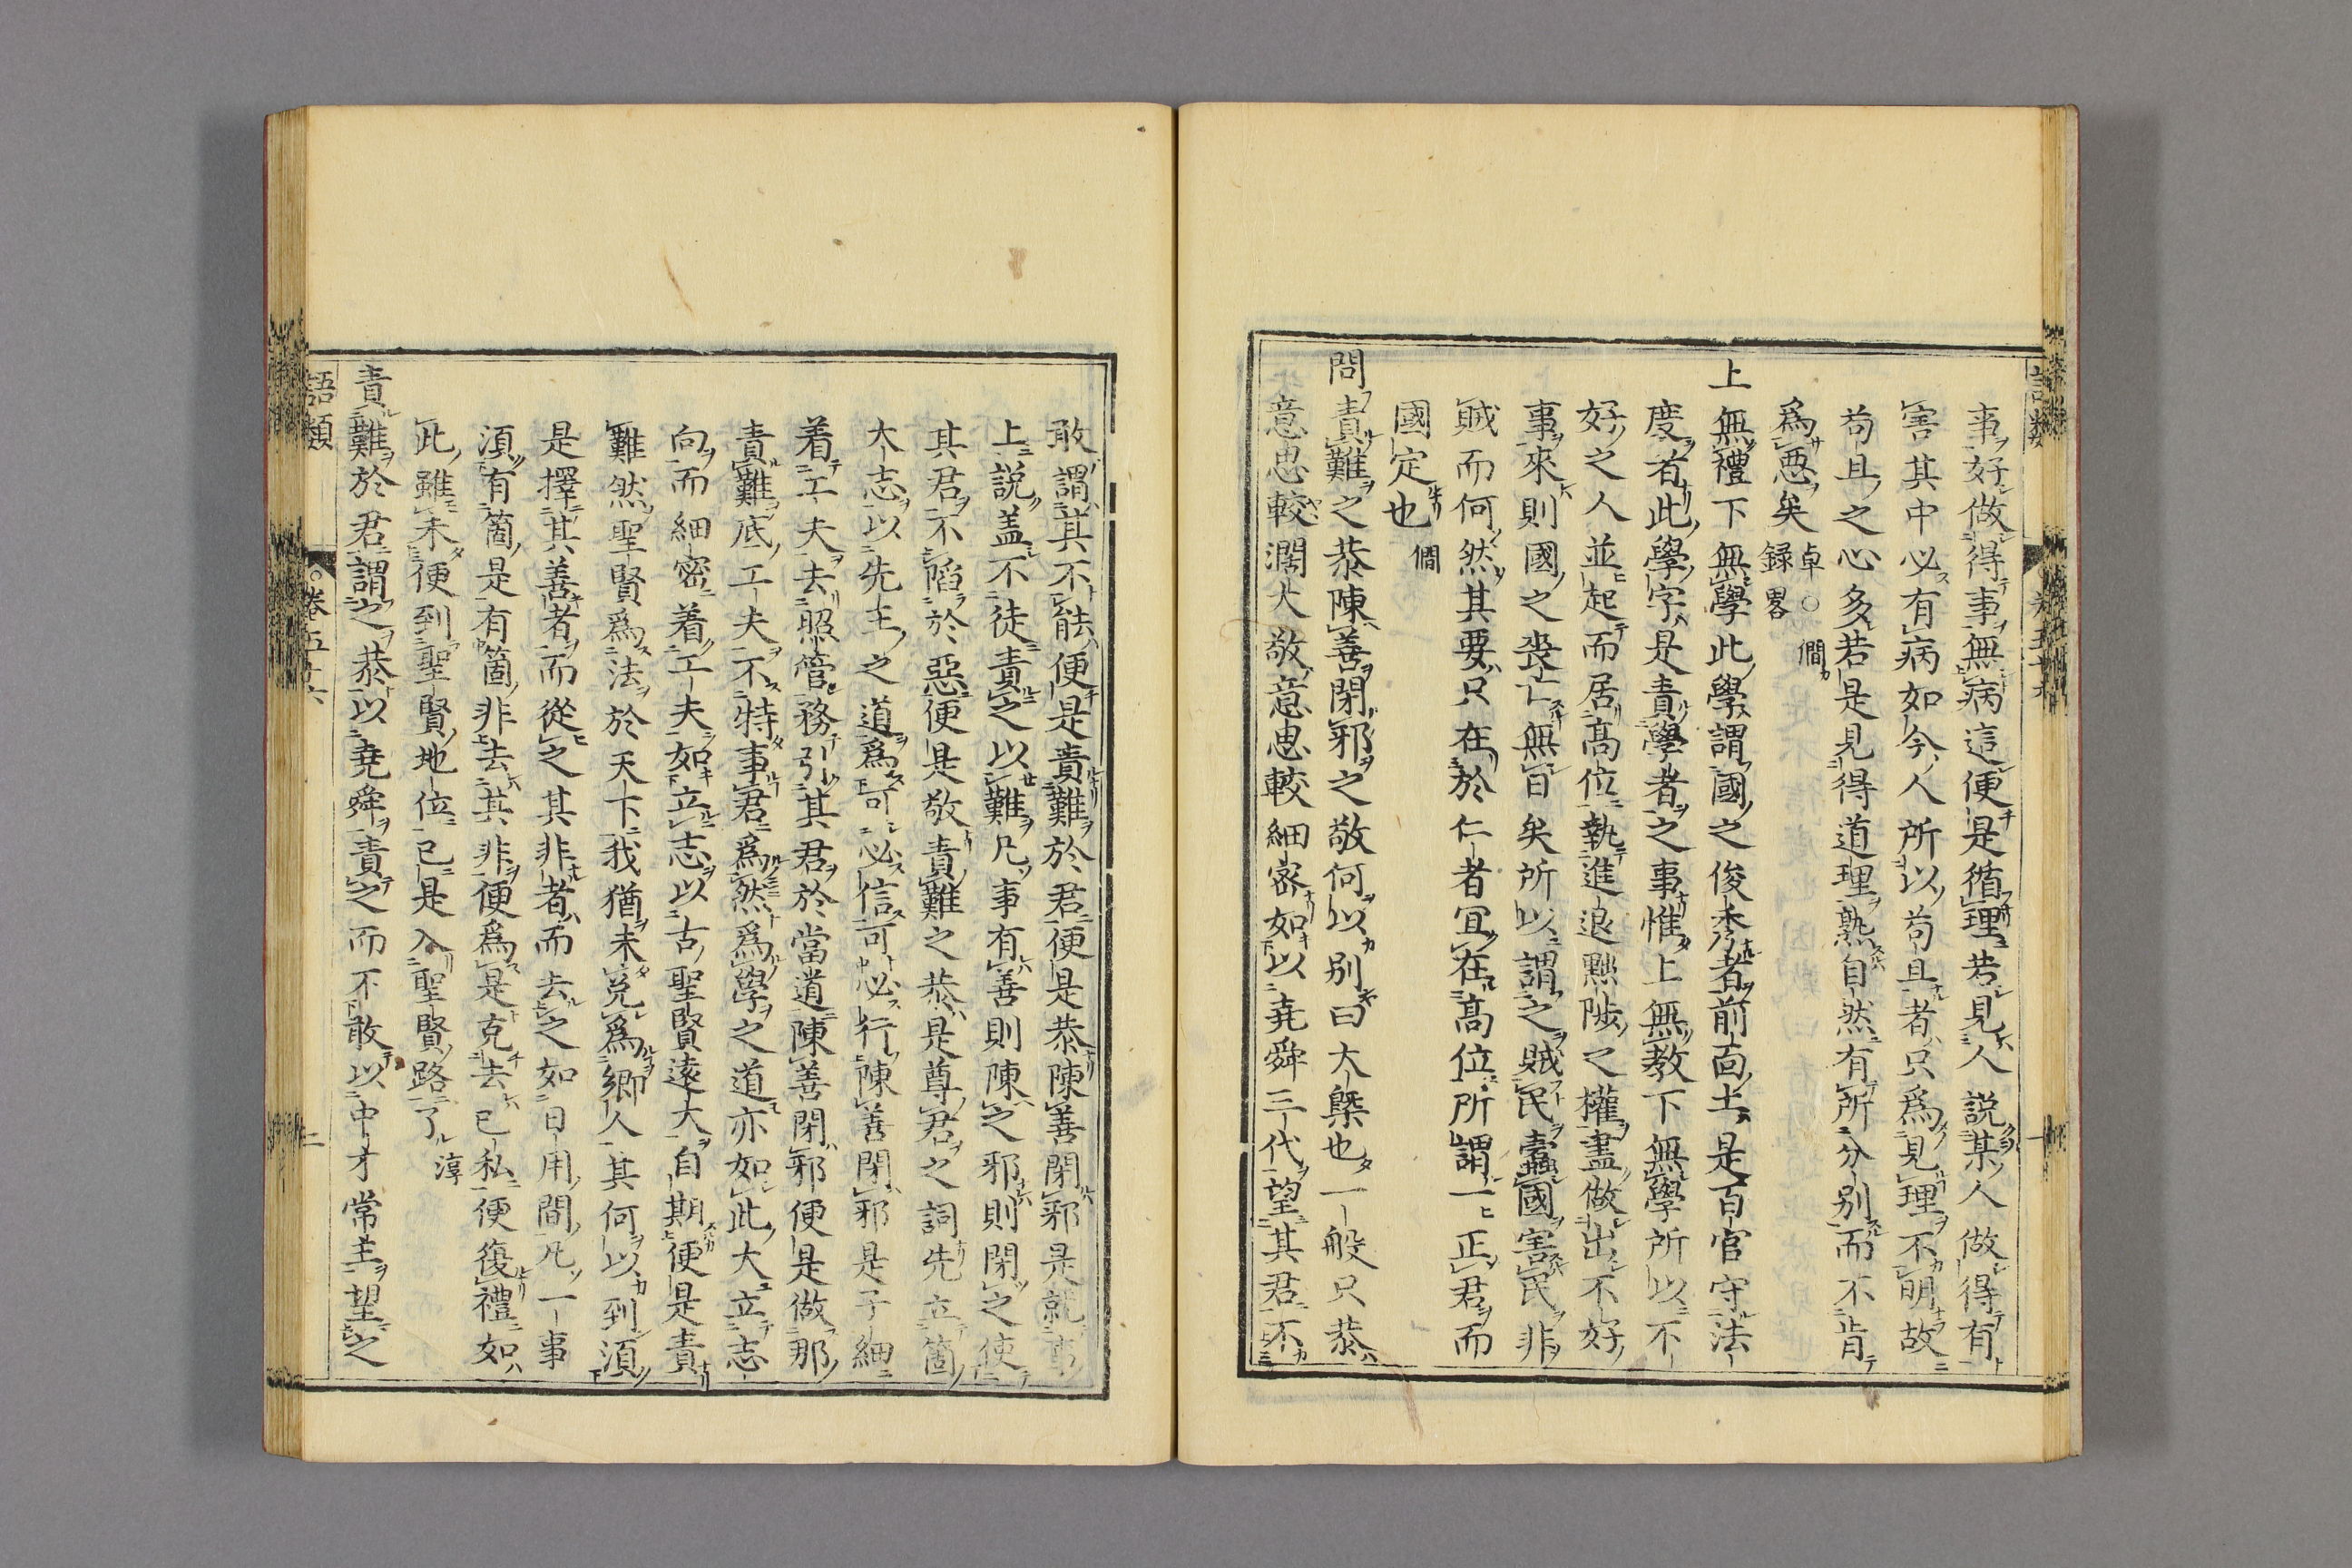 事好做得事無病這便是循理若見人說某人做得有
害其中必有病如今人所以苟且者只爲見理不明故
苟且之心多若是見得道理熟自然有所分別而不肯
爲惡矣 卓○僩録畧
上無禮下無學此學謂國之俊秀者前面工是百官守法
度者此學字是責學者之事惟上無教下無學所以不
好之人並起而居高位執進退黜陟之權盡做出不好
事來則國之喪亡無日矣所以謂之賊民蠹國害民非
賊而何然其要只在於仁者宜在高位所謂一正君而
國定也 僩
問責難之恭陳善閉邪之敬何以別曰大槩也一般只恭
意思較濶大敬意思較細密如以堯舜三代望其君不
敢謂其不能便是責難於君便是恭陳善閉邪是就事
上說盖不徒責之以難凡事有善則陳之邪則閉之使
其君不陷於惡便是敬責難之恭是尊君之詞先立箇
大志以先王之道爲可必信可必行陳善閉邪是子細
着工夫去照管務引其君於當道陳善閉邪便是做那
責難底工夫不特事君爲然爲學之道亦如此大立志
向而細密着工夫如立志以古聖賢遠大自期便是責
難然聖賢爲法於天下我猶未免爲郷人其何以到須
是擇其善者而從之其非者而去之如日用間凡一事
須有箇是有箇非去其非便爲是克去己私便復禮如
此雖未便到聖賢地位已是入聖賢路了 淳
責難於君謂之恭以堯舜責之而不敢以中才常主望之
語類 卷五十六 二